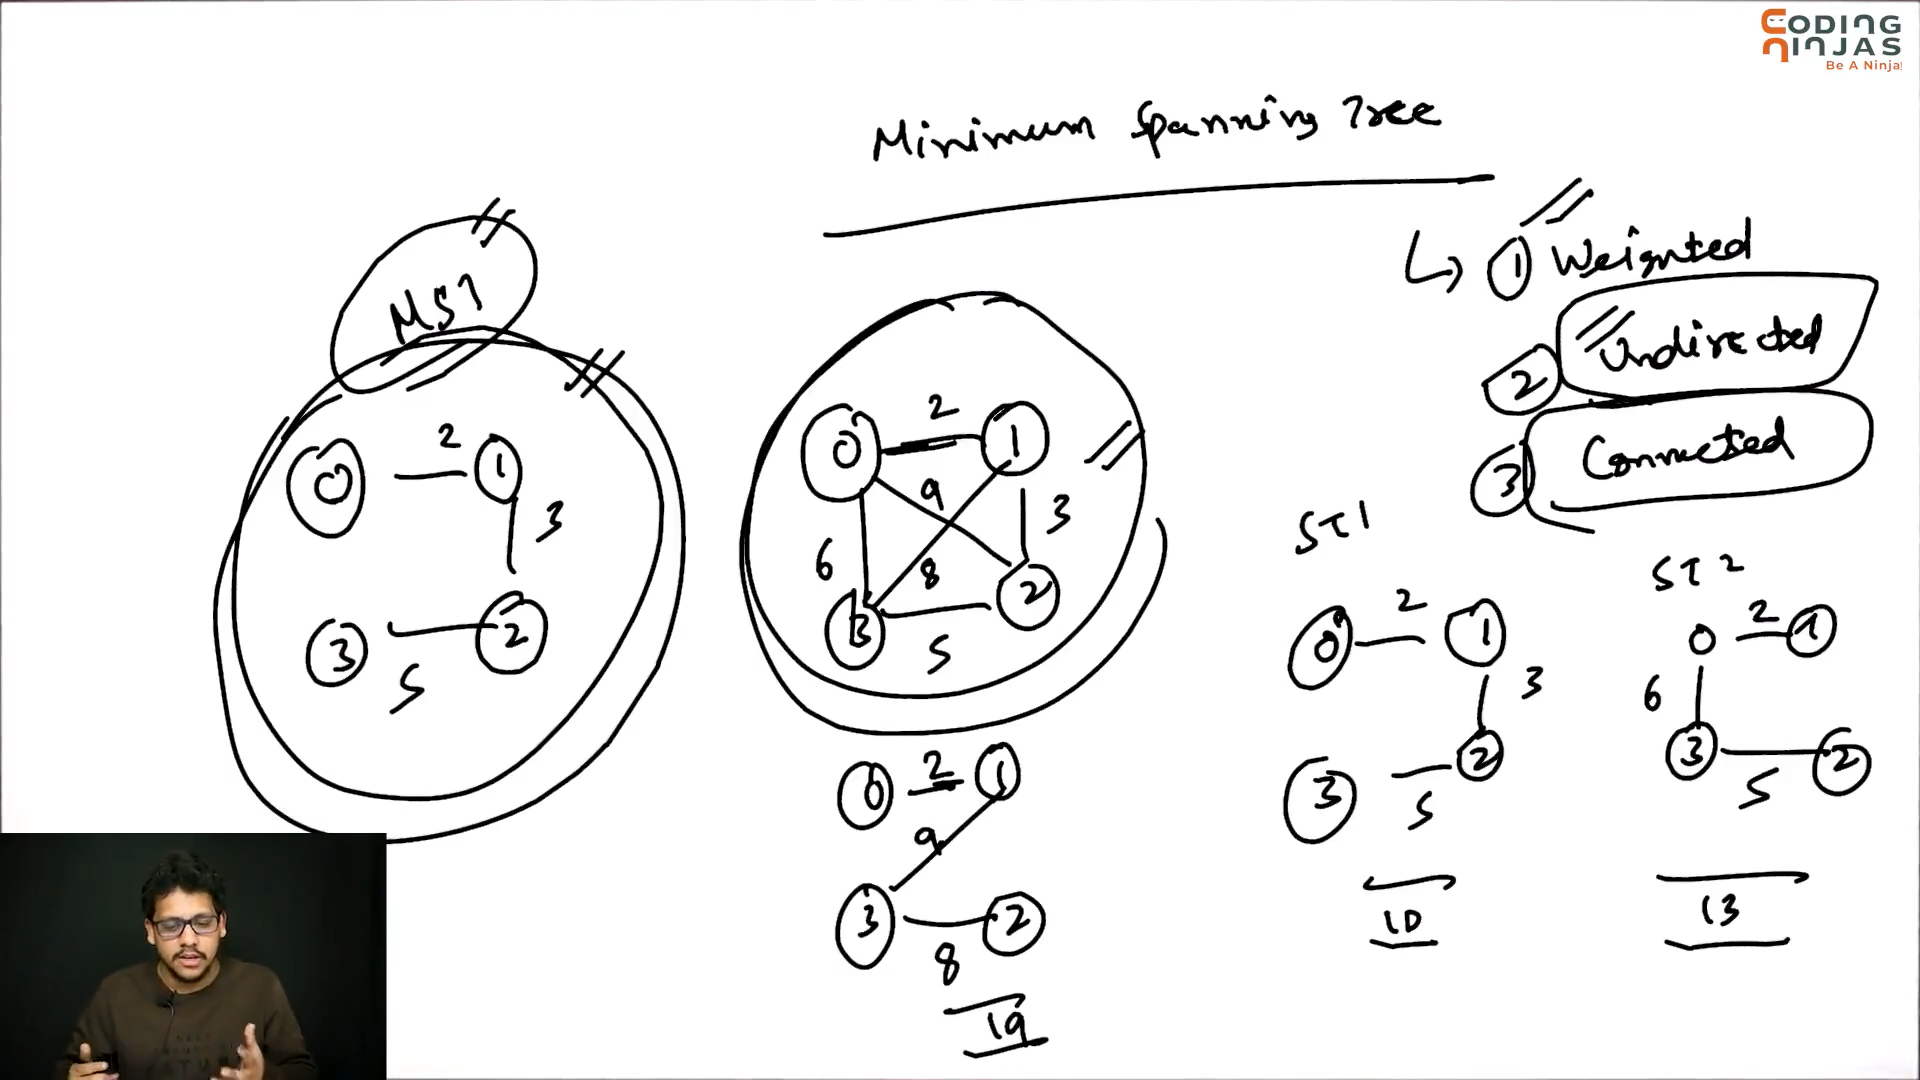 CODING
NINJAS
Be A Ninja!
Minimum Spanning Tree
① Weighted
② Undirected
③ Connected
MST
0 2 1
3
3 5 2
0 2 1
9
6 8 3
3 5 2
ST1
0 2 1
3
3 5 2
10
ST2
0 2 1
6
3 5 2
13
0 2 1
9
3 8 2
19